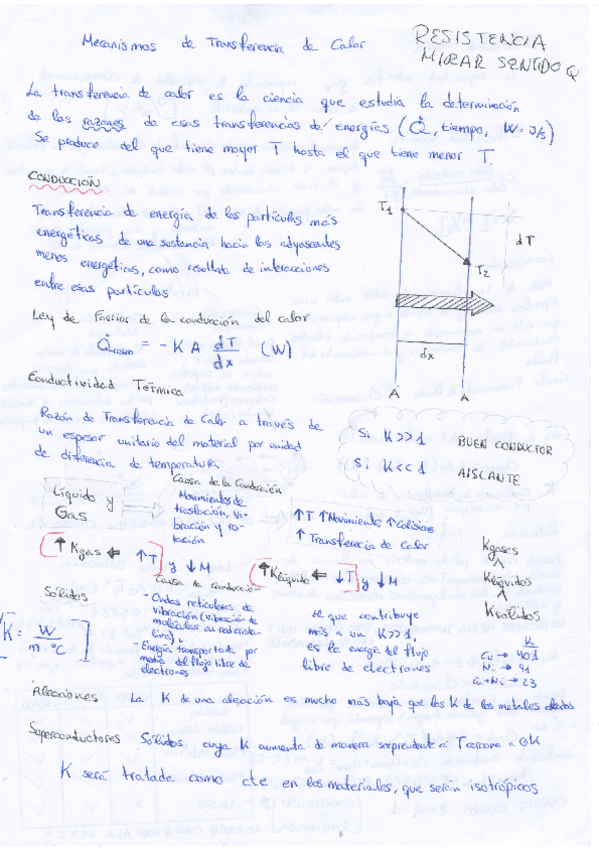 Mecanismos de Transferencia de Calor
RESISTENCIA
MIRAR SENTIDO Q
La transferencia de calor es la ciencia que estudia la determinación
de las razones de esas transferencias de energías (Q̇, tiempo, W=J/s)
Se produce del que tiene mayor T hasta el que tiene menor T.
CONDUCCIÓN
Transferencia de energía de las partículas más
energéticas de una sustancia hacia las adyascentes
menos energéticas, como resultado de interacciones
entre esas partículas
T1
dT
T2
dx
A
A
Ley de Fourier de la conducción del calor
Q̇ = -K A dT/dx (W)
Conductividad Térmica
Razón de Transferencia de Calor a través de
un espesor unitario del material por unidad
de diferencia de temperatura.
Si K>>1 BUEN CONDUCTOR
Si K<<1 AISLANTE
Líquido y
Gas
Causa de la Conducción
Movimientos de
traslación, vi-
bración y ro-
tación
↑T ↑Movimientos ↑Colisiones
↑ Transferencia de Calor
↑ Kgas ← ↑T y ↓M
↑Klíquido ← ↓T y ↓M
Kgases
^
Klíquidos
^
Ksólidos
Sólidos
K = W / m·ºC
Causa de conducción
- Ondas reticulares de
vibración (vibración de
moléculas en red
- Energía transportada por
medio del flujo libre de
electrones
El que contribuye
más a un K>>1
es la energía del flujo
libre de electrones
K
Cu → 401
Ni → 91
Cu+Ni → 23
Aleaciones La K de una aleación es mucho más baja que las K de los metales
Superconductores Sólidos cuya K aumenta de manera sorprendente a T cercana a 0K
K será tratada como cte en los materiales, que serán isotrópicos